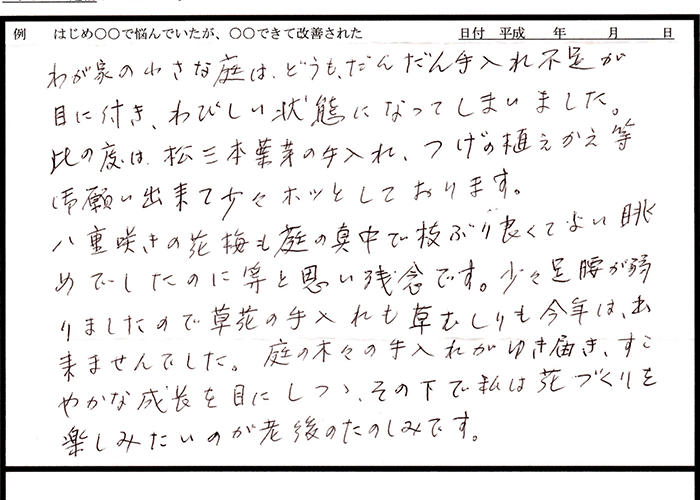 例 はじめ〇〇で悩んでいたが、〇〇できて改善された 日付 平成 年 月 日
わが家の小さな庭は、どうも、だんだん手入れ不足が
目に付き、わびしい状態になってしまいました。
此の度は、松三本葉芽の手入れ、つげの植えかえ等
御願い出来て少々ホッとしております。
八重咲きの花梅も庭の真中で枝ぶり良くてよい眺
めでしたのに等と思い残念です。少々足腰が弱
りましたので草花の手入れも草むしりも今年は、出
来ませんでした。庭の木々の手入れがゆき届き、すこ
やかな成長を目にしつゝ、その下で私は花づくりを
楽しみたいのが老後のたのしみです。